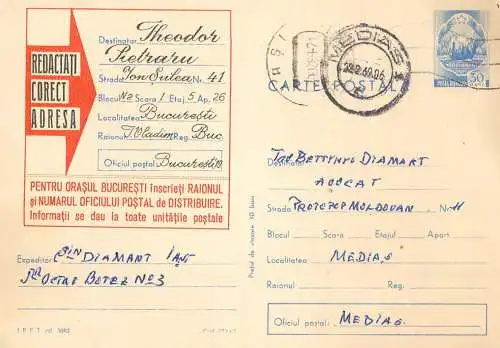 REDACTAȚI
CORECT
ADRESA
Destinatar Theodor
Pietraru
Strada Ion Șulea Nr. 41
Blocul N2 Scara 1 Etaj 5 Ap. 26
Localitatea București
Raionul T. Vladim. Reg. Buc.
Oficiul poștal București 19
PENTRU ORAȘUL BUCUREȘTI înscrieți RAIONUL
și NUMĂRUL OFICIULUI POȘTAL de DISTRIBUIRE.
Informații se dau la toate unitățile poștale
Expeditor DIAMANT IAȘI
No 3
MEDIAȘ
CARTE POȘTALĂ
30
DIAMANT
AVOCAT
Strada PROTOPOP MOLDOVAN Nr. 11
Blocul Scara Etajul Apart.
Localitatea MEDIAȘ
Raionul Reg.
Oficiul poștal: MEDIAȘ
Prețul de vînzare 30 bani